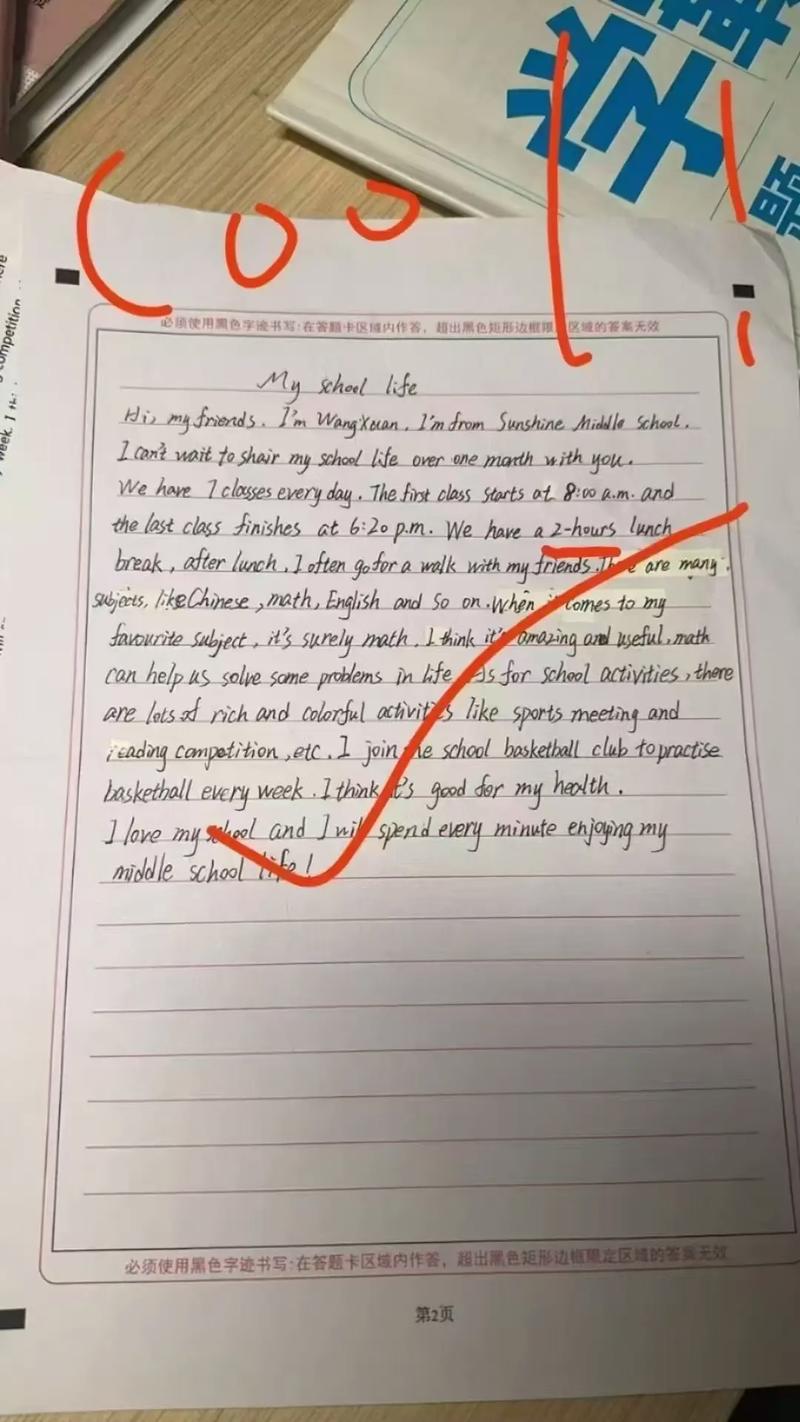 学霸
题
Cool!
必须使用黑色字迹书写:在答题卡区域内作答，超出黑色矩形边框限定区域的答案无效
My school life
Hi, my friends. I'm WangXuan. I'm from Sunshine Middle School.
I can't wait to shair my school life over one month with you.
We have 7 classes every day. The first class starts at 8:00 a.m. and
the last class finishes at 6:20 p.m. We have a 2-hours lunch
break, after lunch, I often go for a walk with my friends. There are many
subjects, like Chinese, math, English and so on. When it comes to my
favourite subject, it's surely math. I think it's amazing and useful, math
can help us solve some problems in life. As for school activities, there
are lots of rich and colorful activities like sports meeting and
reading competition, etc. I join the school basketball club to practise
basketball every week. I think it's good for my health.
I love my school and I will spend every minute enjoying my
middle school life!
必须使用黑色字迹书写:在答题卡区域内作答，超出黑色矩形边框限定区域的答案无效
第2页
competition
week. I